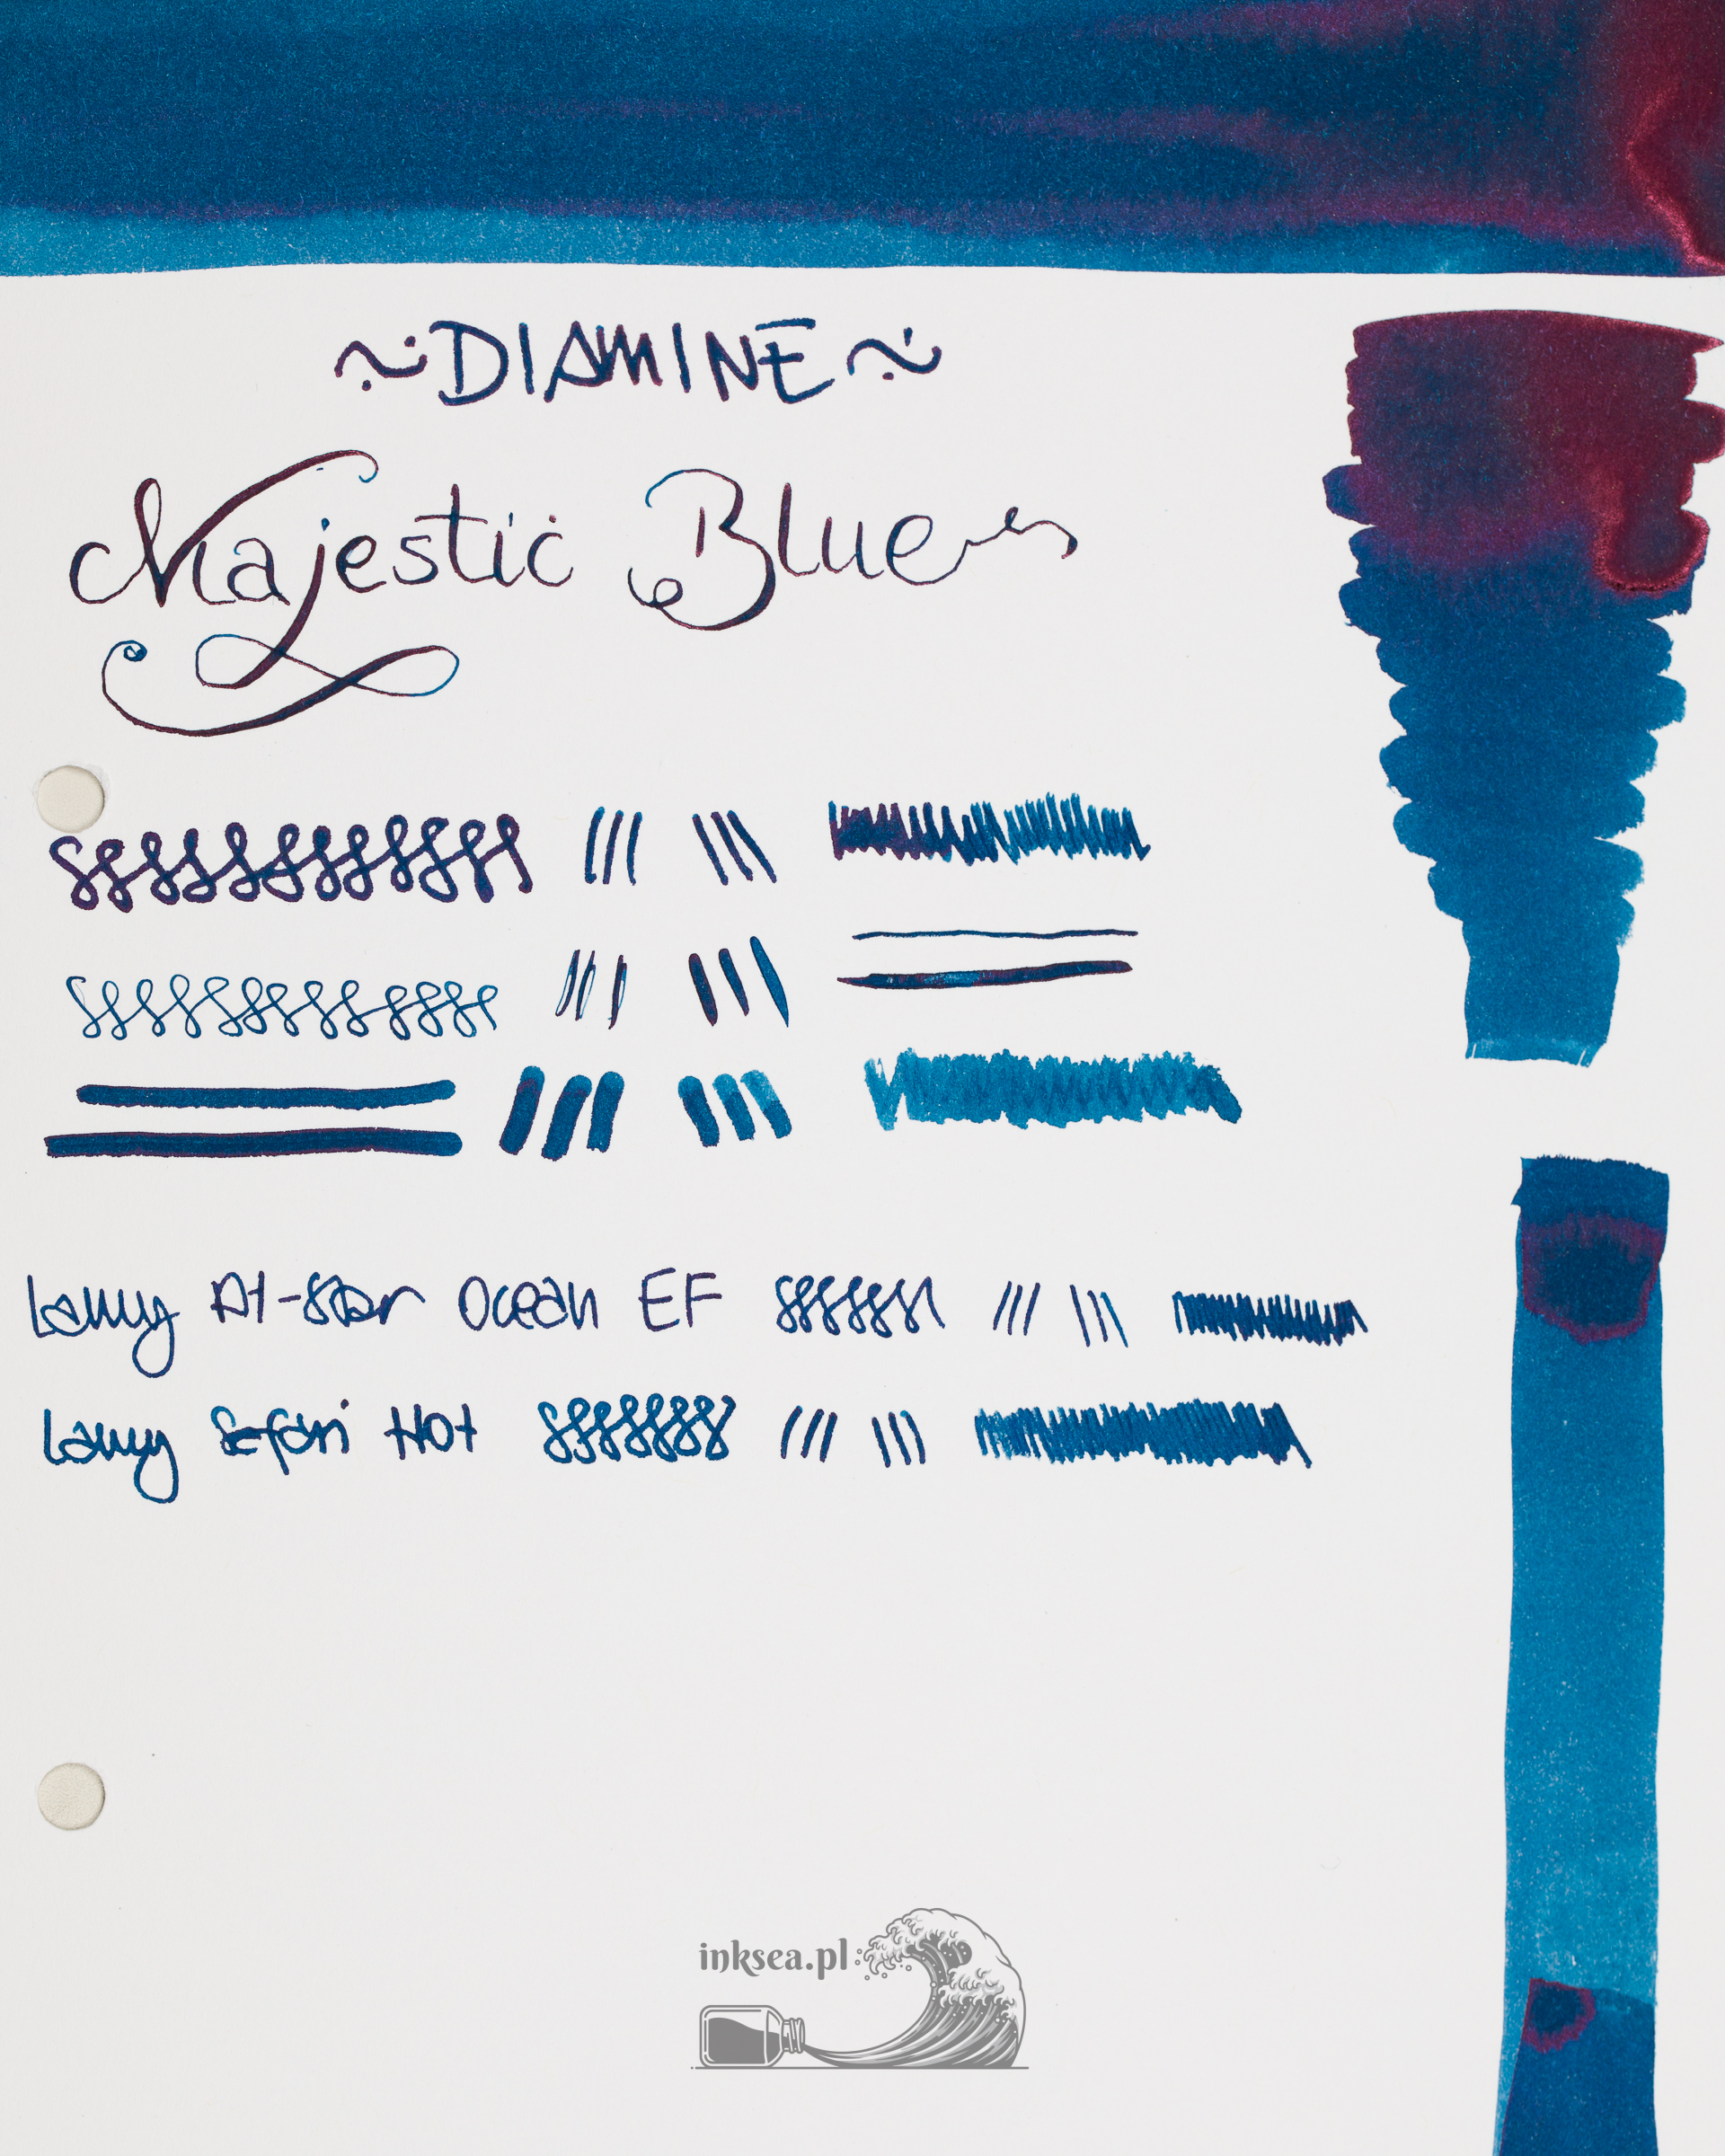 ~DIAMINE~
Majestic Blue
Lamy Al-Star Ocean EF
Lamy Safari Hot
inksea.pl